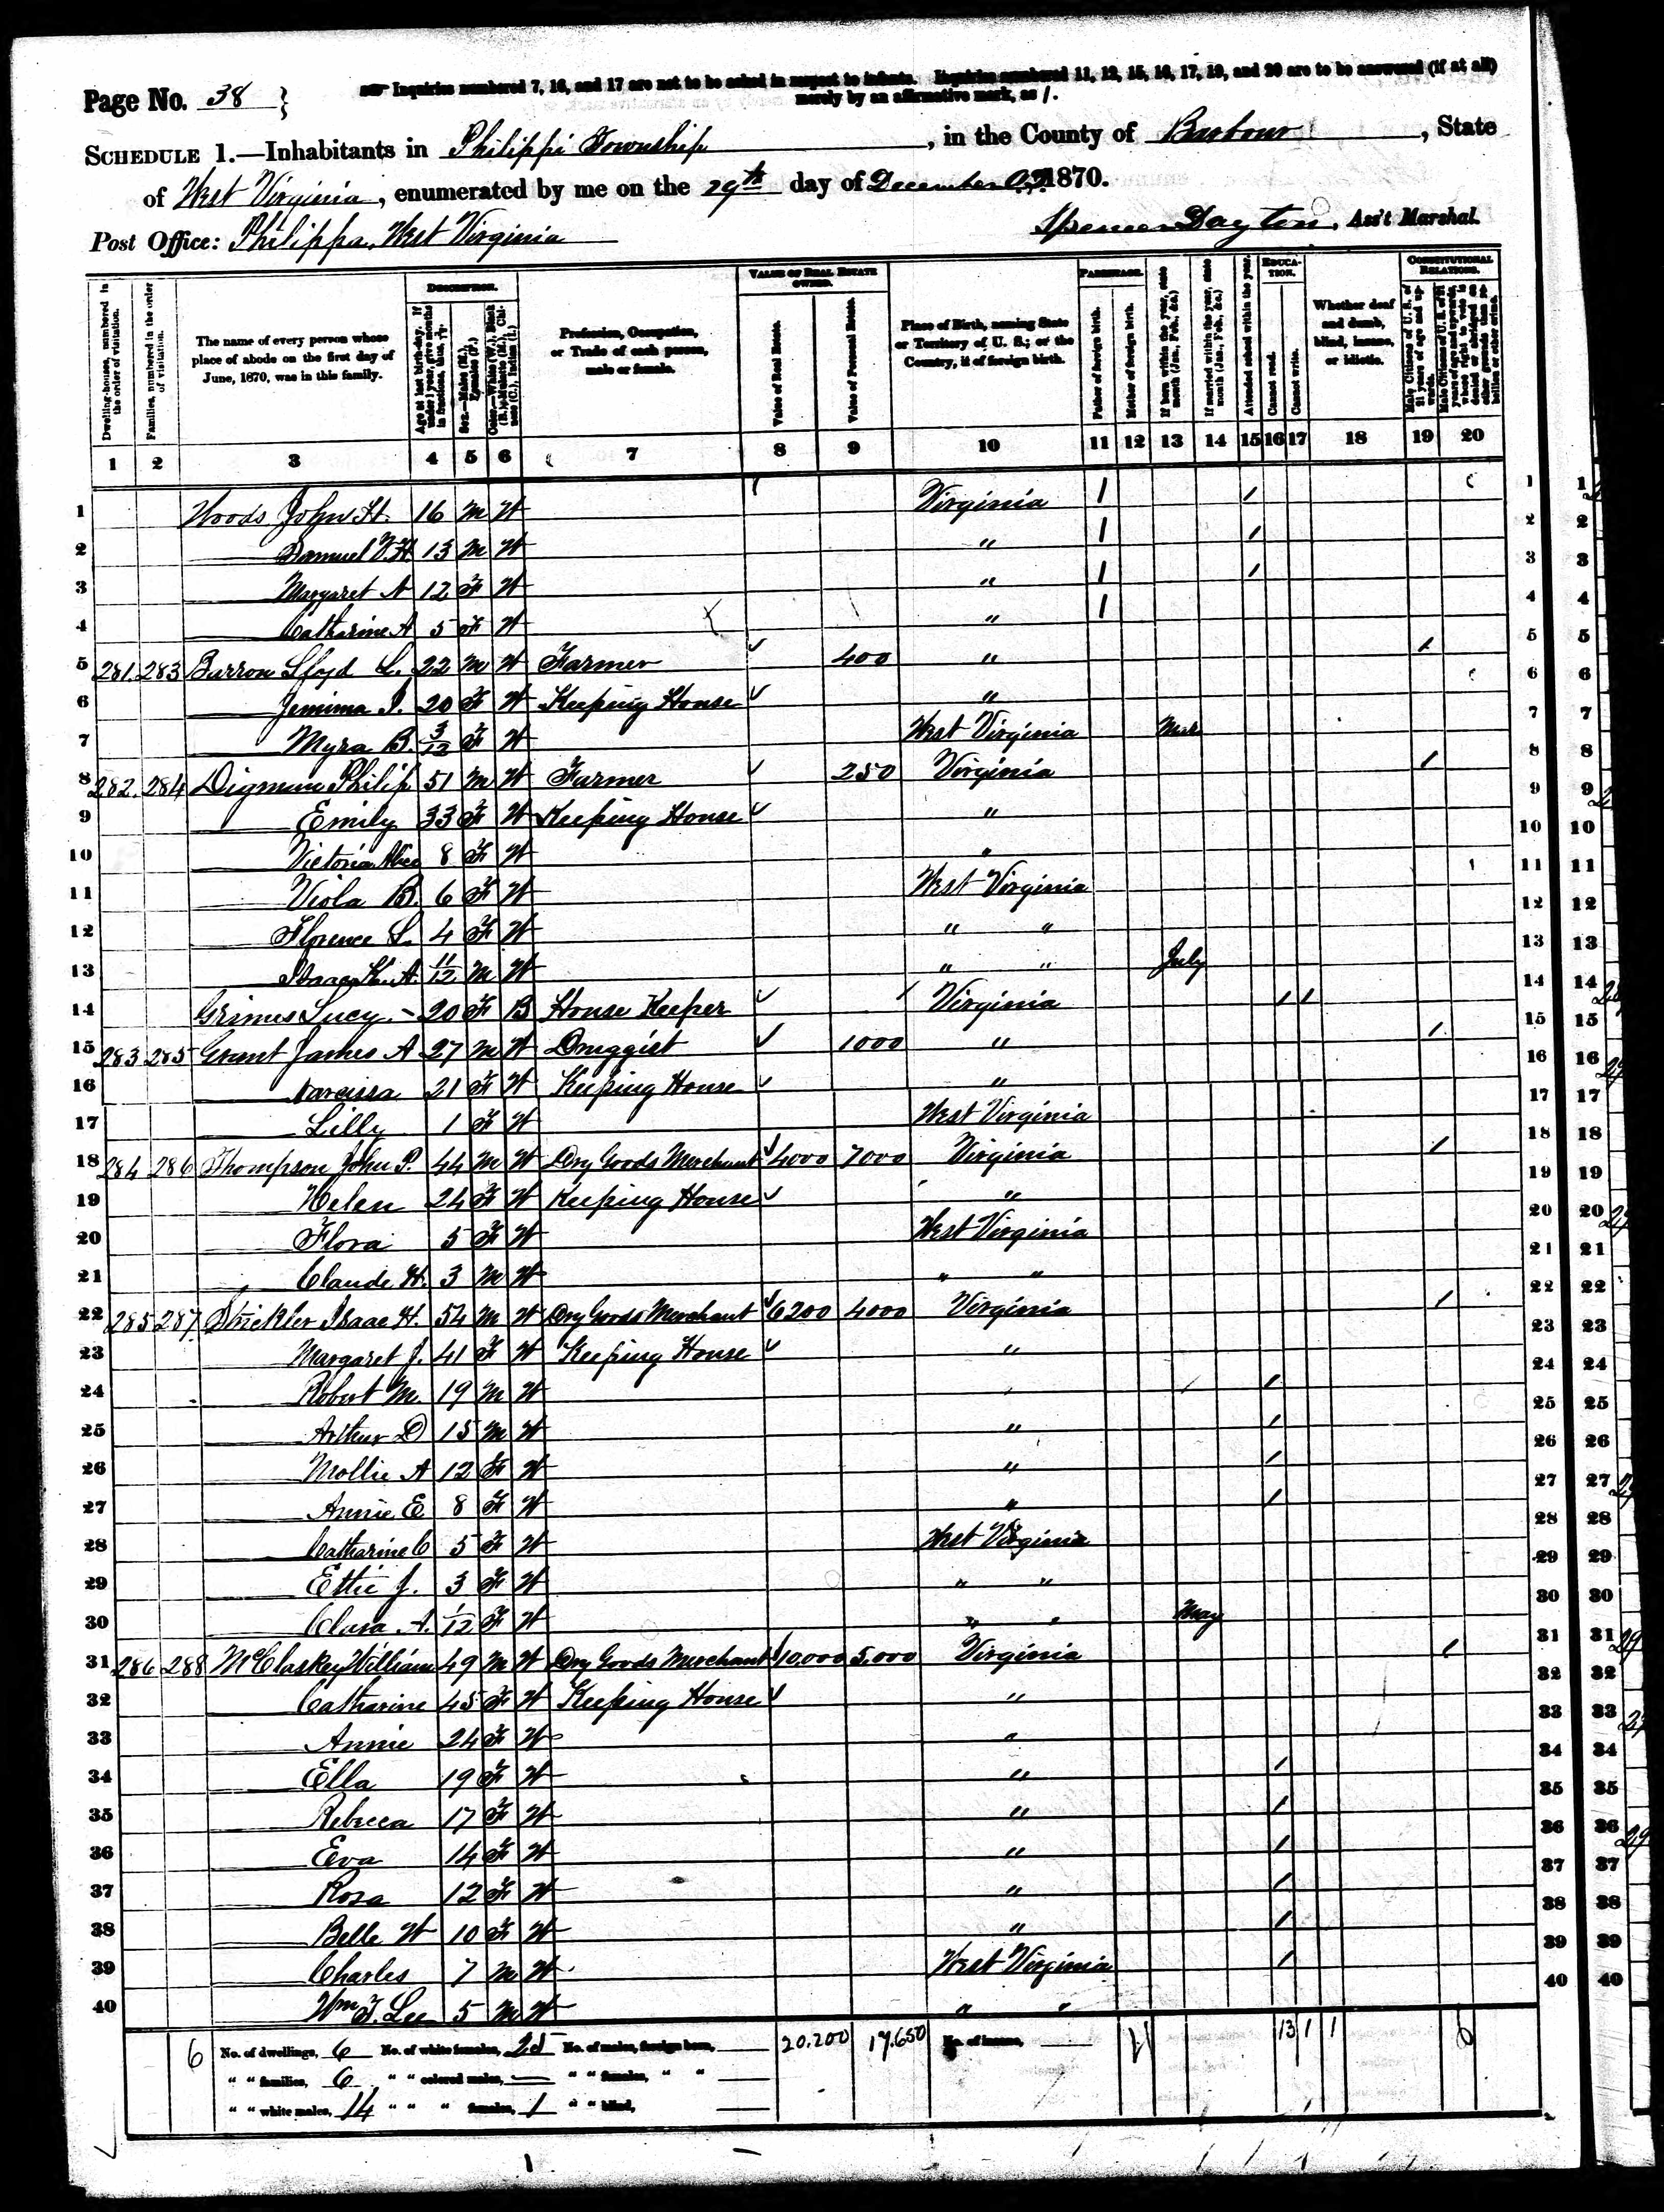 Page No. 38 }
Inquiries numbered 7, 16, and 17 are not to be asked in respect to infants. Inquiries numbered 11, 12, 15, 16, 17, 19, and 20 are to be answered (if at all)
merely by an affirmative mark, as /.
SCHEDULE 1.—Inhabitants in Philippi Township, in the County of Barbour, State
of West Virginia, enumerated by me on the 29th day of December 1870.
Post Office: Philippa, West Virginia
Spencer Dayton, Ass't Marshal.
Dwelling-houses, numbered in the order of visitation.
Families, numbered in the order of visitation.
The name of every person whose place of abode on the first day of June, 1870, was in this family.
DESCRIPTION.
Age at last birth-day. If under 1 year, give months in fractions, thus, 3/12
Sex.—Males (M.), Females (F.)
Color.—White (W.), Black (B.), Mulatto (M.), Chinese (C.), Indian (I.)
Profession, Occupation, or Trade of each person, male or female.
VALUE OF REAL ESTATE OWNED.
Value of Real Estate.
Value of Personal Estate.
Place of Birth, naming State or Territory of U. S.; or the Country, if of foreign birth.
PARENTAGE.
Father of foreign birth.
Mother of foreign birth.
If born within the year, state month (Jan., Feb., &c.)
If married within the year, state month (Jan., Feb., &c.)
Attended school within the year.
EDUCATION.
Cannot read.
Cannot write.
Whether deaf and dumb, blind, insane, or idiotic.
CONSTITUTIONAL RELATIONS.
Male Citizens of U. S. of 21 years of age and upwards.
Male Citizens of U. S. of 21 years of age and upwards, whose right to vote is denied or abridged on other grounds than rebellion or other crime.
1 2 3 4 5 6 7 8 9 10 11 12 13 14 15 16 17 18 19 20
1 Woods John H. 16 M W Virginia / / 1 1
2 Samuel V. H. 13 M W " / / 2 2
3 Margaret A 12 F W " / / 3 3
4 Catharine A 5 F W " / 4 4
5 281 283 Barron Lloyd L. 22 M W Farmer 400 " / 5 5
6 Jemima J. 20 F W Keeping House " 6 6
7 Myra B. 3/12 F W West Virginia Mar 7 7
8 282 284 Digman Philip 51 M W Farmer 250 Virginia / 8 8
9 Emily 33 F W Keeping House " 9 9
10 Victoria Alice 8 F W " 10 10
11 Viola B. 6 F W West Virginia 11 11
12 Florence L. 4 F W " " 12 12
13 Isaac H. A. 11/12 M W " " July 13 13
14 Grimes Lucy 20 F B House Keeper Virginia / / 14 14
15 283 285 Grant James A 27 M W Druggist 1000 " / 15 15
16 Narcissa 21 F W Keeping House " 16 16
17 Lilly 1 F W West Virginia 17 17
18 284 286 Thompson John P. 44 M W Dry Goods Merchant 4000 7000 Virginia / 18 18
19 Helen 24 F W Keeping House " 19 19
20 Flora 5 F W West Virginia 20 20
21 Claude H. 3 M W " " 21 21
22 285 287 Strickler Isaac H. 54 M W Dry Goods Merchant 6200 4000 Virginia / 22 22
23 Margaret J. 41 F W Keeping House " 23 23
24 Robert M. 19 M W " / 24 24
25 Arthur D 15 M W " / 25 25
26 Mollie A 12 F W " / 26 26
27 Annie E 8 F W " / 27 27
28 Catharine C 5 F W West Virginia 28 28
29 Ettie J. 3 F W " " 29 29
30 Clara A. 1/12 F W " " May 30 30
31 286 288 McClaskey William 49 M W Dry Goods Merchant 10,000 5,000 Virginia / 31 31
32 Catharine 45 F W Keeping House " 32 32
33 Annie 24 F W " 33 33
34 Ella 19 F W " / 34 34
35 Rebecca 17 F W " / 35 35
36 Eva 14 F W " / 36 36
37 Rosa 12 F W " / 37 37
38 Belle W 10 F W " / 38 38
39 Charles 7 M W West Virginia / 39 39
40 Wm T. Lee 5 M W " " 40 40
6 No. of dwellings, 6 No. of white females, 25 No. of males, foreign born, 20,200 17,650 No. of insane, 4 13 1 1 6
" " families, 6 " " colored males, — " " females, " "
" " white males, 14 " " " females, 1 " " blind,